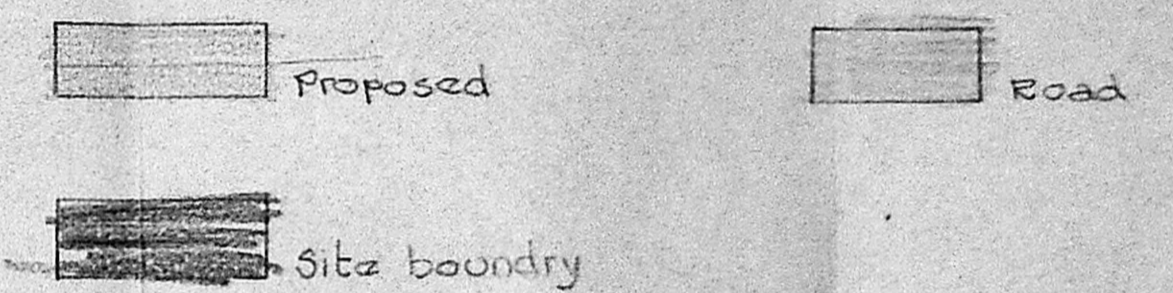 Proposed
Road
Site boundry